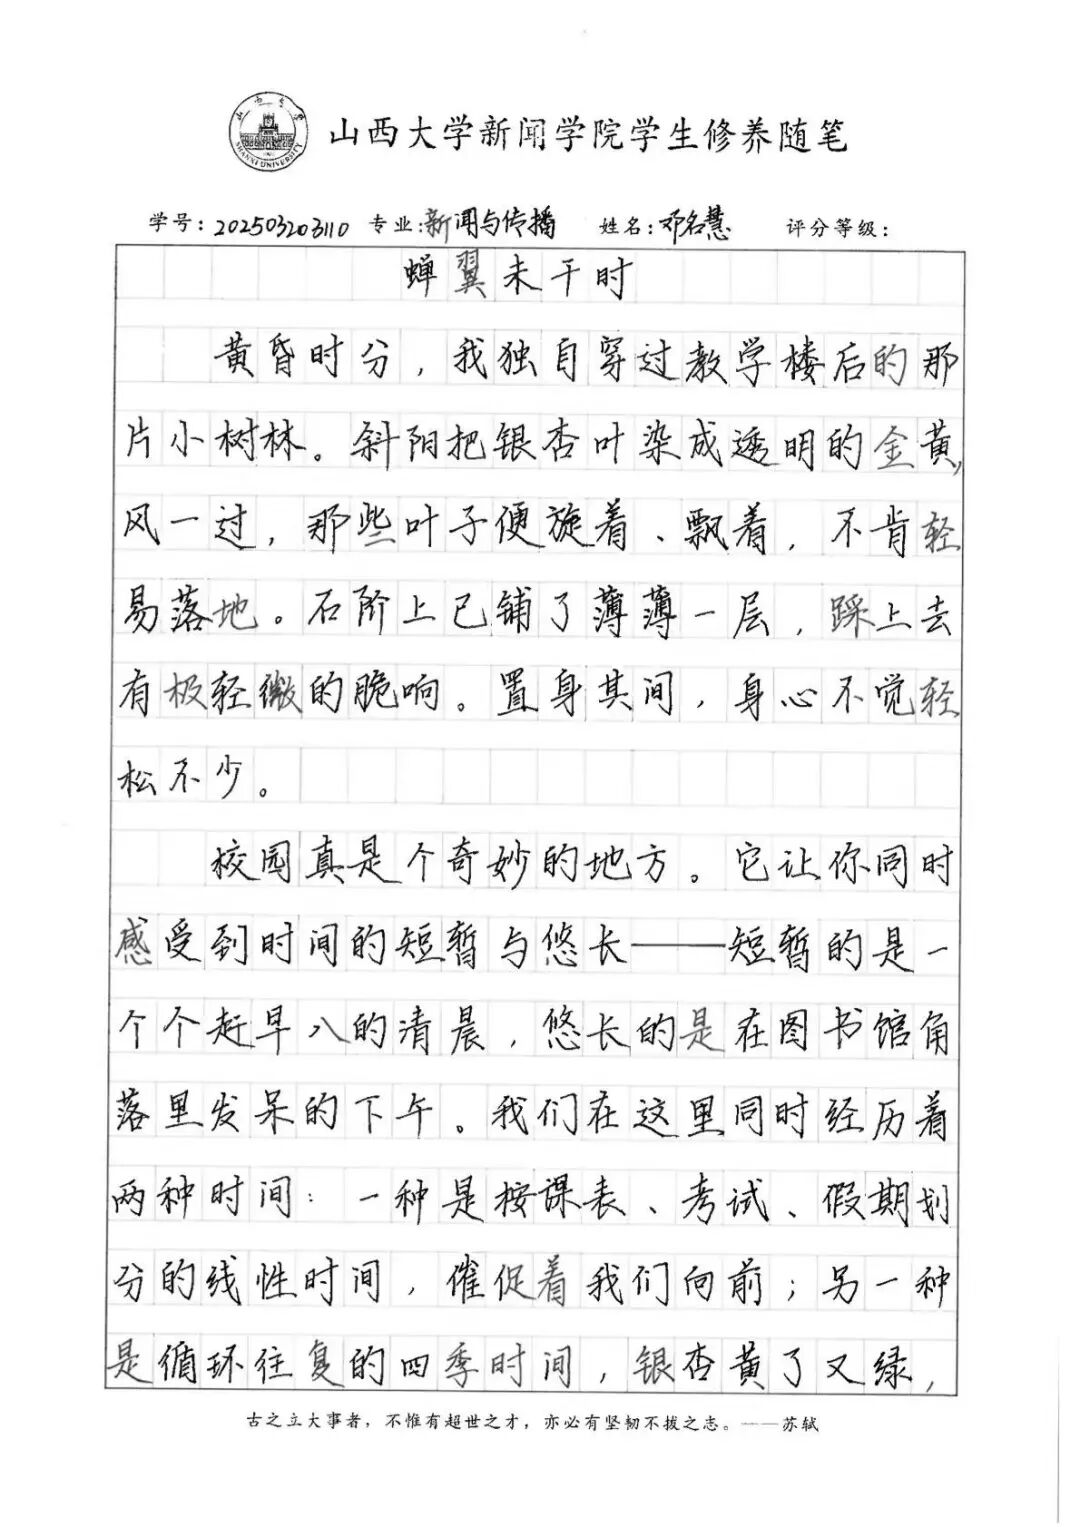 山西大学
SHANXI UNIVERSITY
山西大学新闻学院学生修养随笔
学号:202503203110 专业:新闻与传播 姓名:邓名慧 评分等级:
蝉翼未干时
黄昏时分，我独自穿过教学楼后的那
片小树林。斜阳把银杏叶染成透明的金黄，
风一过，那些叶子便旋着、飘着，不肯轻
易落地。石阶上已铺了薄薄一层，踩上去
有极轻微的脆响。置身其间，身心不觉轻
松不少。
校园真是个奇妙的地方。它让你同时
感受到时间的短暂与悠长——短暂的是一
个个赶早八的清晨，悠长的是在图书馆角
落里发呆的下午。我们在这里同时经历着
两种时间：一种是按课表、考试、假期划
分的线性时间，催促着我们向前；另一种
是循环往复的四季时间，银杏黄了又绿，
古之立大事者，不惟有超世之才，亦必有坚韧不拔之志。——苏轼